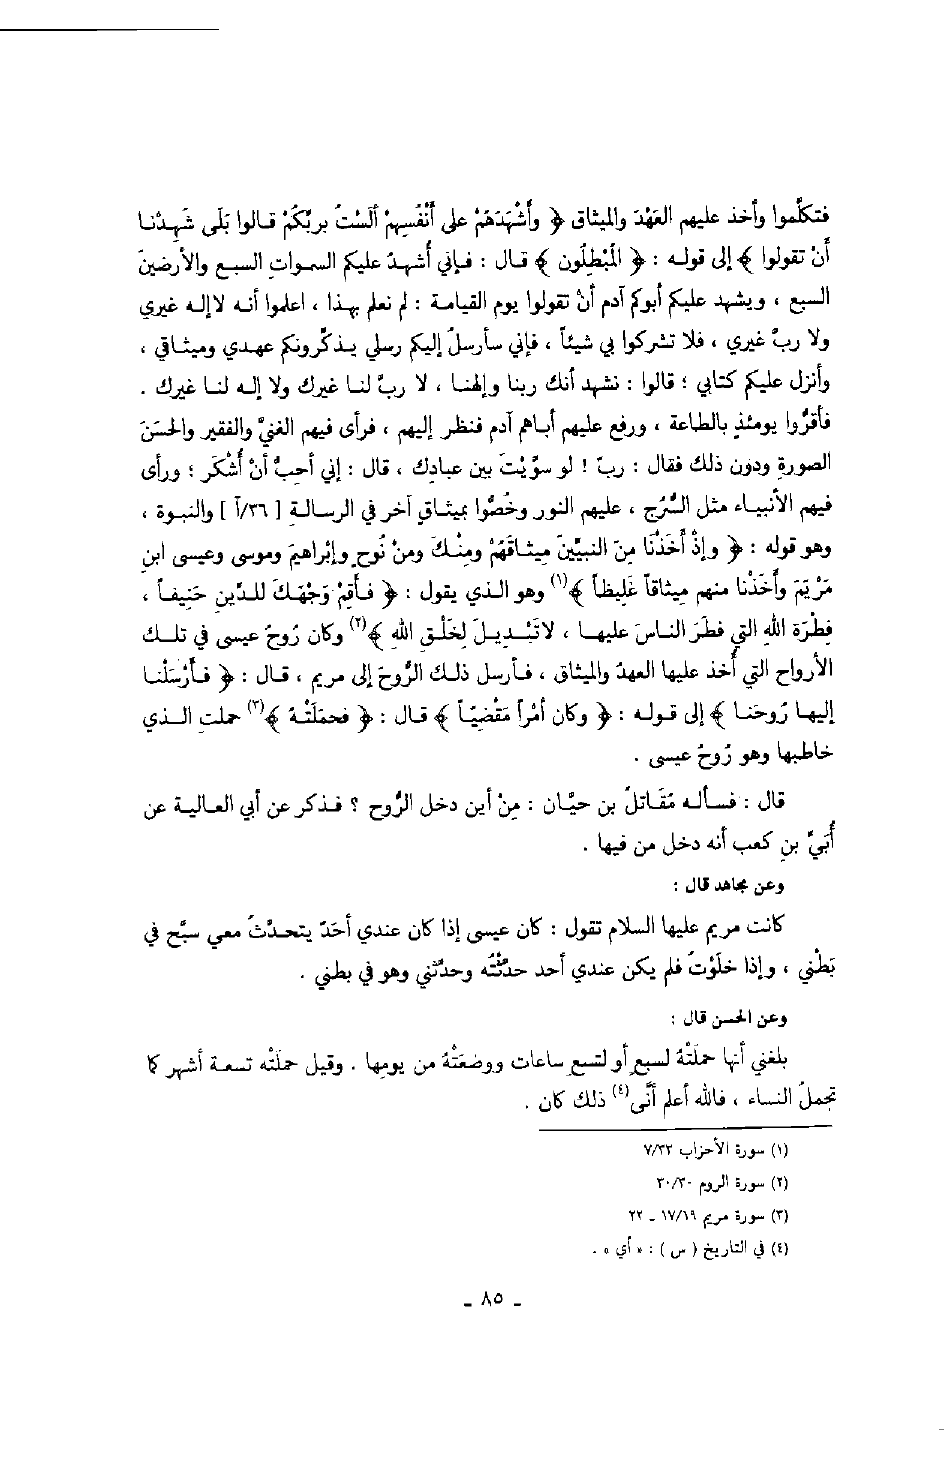 فتكلَّموا وأخذ عليهم العَهْدَ والميثاق ﴿ وأَشْهَدَهُمْ على أَنْفُسِهِمْ ألَسْتُ بربِّكُمْ قالوا بَلَى شَهِدْنا
أَنْ تقولوا ﴾ إلى قوله : ﴿ المُبْطِلُون ﴾ قال : فإني أُشهدُ عليكم السموات السبع والأرضينَ
السبع ، ويشهد عليكم أبوكم آدم أنْ تقولوا يوم القيامة : لم نعلم بهذا ، اعلموا أنه لاإله غيري
ولا ربَّ غيري ، فلا تشركوا بي شيئاً ، فإني سأرسلُ إليكم رسلي يذكِّرونكم عهدي وميثاقي ،
وأنزل عليكم كتابي ؛ قالوا : نشهد أنك ربنا وإلهنا ، لا ربَّ لنا غيرك ولا إله لنا غيرك .
فأقرُّوا يومئذٍ بالطاعة ، ورفع عليهم أباهم آدم فنظر إليهم ، فرأى فيهم الغنيَّ والفقير والحسَنَ
الصورةِ ودون ذلك فقال : ربِّ ! لو سوَّيْتَ بين عبادِك ، قال : إني أحبُّ أنْ أُشْكَر ؛ ورأى
فيهم الأنبياء مثل السُّرُجِ ، عليهم النور وخُصُّوا بميثاقٍ آخر في الرسالةِ [ ٣٦/أ ] والنبوة ،
وهو قوله : ﴿ وإذْ أَخَذْنَا مِنَ النبيِّينَ مِيثاقَهُمْ ومِنْكَ ومنْ نُوحٍ وإبْراهيمَ وموسى وعيسى ابنِ
مَرْيَمَ وأَخَذْنا منهم مِيثاقاً غَلِيظاً ﴾(١) وهو الذي يقول : ﴿ فأَقِمْ وَجْهَكَ للدِّينِ حَنِيفاً ،
فِطْرَة اللهِ التي فطَرَ الناسَ عليها ، لاتَبْدِيلَ لِخَلْقِ اللهِ ﴾(٢) وكان رُوحُ عيسى في تلك
الأرواح التي أُخذ عليها العهدُ والميثاق ، فأرسل ذلك الرُّوحَ إلى مريم ، قال : ﴿ فأَرْسَلْنا
إليها رُوحَنا ﴾ إلى قوله : ﴿ وكان أمْراً مَقْضِيّاً ﴾ قال : ﴿ فحَمَلَتْهُ ﴾(٣) حملتِ الذي
خاطبها وهو رُوحُ عيسى .
قال : فسأله مُقَاتلُ بن حيَّان : مِنْ أين دخل الرُّوح ؟ فذكر عن أبي العالية عن
أُبَيِّ بنِ كعب أنه دخل من فيها .
وعن مجاهد قال :
كانت مريم عليها السلام تقول : كان عيسى إذا كان عندي أحَدٌ يتحدَّثُ معي سبَّح في
بَطْني ، وإذا خلَوْتُ فلم يكن عندي أحد حدَّثْتُه وحدَّثني وهو في بطني .
وعن الحسن قال :
بلغني أنها حملَتْهُ لسبعٍ أو لتسع ساعات ووضعَتْهُ من يومِها . وقيل حملَتْه تسعة أشهر كما
تحملُ النساء ، فالله أعلم أنَّى(٤) ذلك كان .
(١) سورة الأحزاب ٧/٣٣
(٢) سورة الروم ٣٠/٣٠
(٣) سورة مريم ١٧/١٩ ـ ٢٢
(٤) في التاريخ ( س ) : « أي » .
ـ ٨٥ ـ